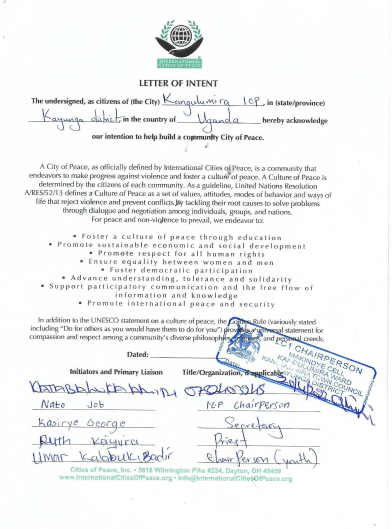 INTERNATIONAL
CITIES OF PEACE
LETTER OF INTENT
The undersigned, as citizens of (the City) Kangulumira ICP, in (state/province)
Kayunga district, in the country of Uganda hereby acknowledge
our intention to help build a community City of Peace.
A City of Peace, as officially defined by International Cities of Peace, is a community that
endeavors to make progress against violence and foster a culture of peace. A Culture of Peace is
determined by the citizens of each community. As a guideline, United Nations Resolution
A/RES/52/13 defines a Culture of Peace as a set of values, attitudes, modes of behavior and ways of
life that reject violence and prevent conflicts by tackling their root causes to solve problems
through dialogue and negotiation among individuals, groups, and nations.
For peace and non-violence to prevail, we endeavor to:
• Foster a culture of peace through education
• Promote sustainable economic and social development
• Promote respect for all human rights
• Ensure equality between women and men
• Foster democratic participation
• Advance understanding, tolerance and solidarity
• Support participatory communication and the free flow of
information and knowledge
• Promote international peace and security
In addition to the UNESCO statement on a culture of peace, the Golden Rule (variously stated
including "Do for others as you would have them to do for you") provides a universal statement for
compassion and respect among a community's diverse philosophies, and personal creeds.
LC1 CHAIRPERSON
MAKINDYE CELL
KANGULUMIRA WARD
TOWN COUNCIL
KAYUNGA DISTRICT
Dated:
Initiators and Primary Liaison Title/Organization, if applicable
Nato Job ICP Chairperson
Kasirye George Secretary
Ruth Kayiira Priest
Umar Kalabuki Badir Chairperson (youth)
Cities of Peace, Inc. • 5818 Wilmington Pike #234, Dayton, OH 45459
www.InternationalCitiesOfPeace.org • Info@InternationalCitiesOfPeace.org